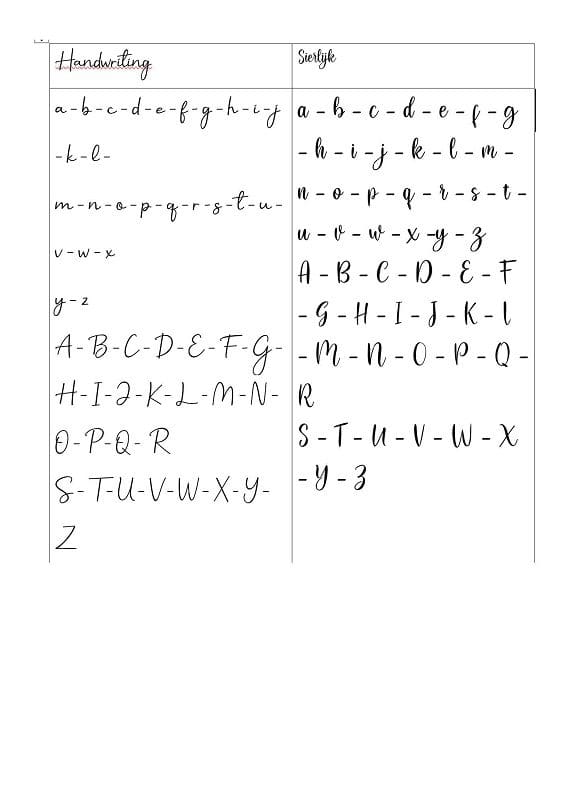 Handwriting
a-b-c-d-e-f-g-h-i-j
-k-l-
m-n-o-p-q-r-s-t-u-
v-w-x
y-z
A-B-C-D-E-F-G-
H-I-J-K-L-M-N-
O-P-Q-R
S-T-U-V-W-X-Y-
Z
Sierlijk
a - b - c - d - e - f - g
- h - i - j - k - l - m -
n - o - p - q - r - s - t -
u - v - w - x -y - z
A - B - C - D - E - F
- G - H - I - J - K - L
- M - N - O - P - Q -
R
S - T - U - V - W - X
- Y - Z